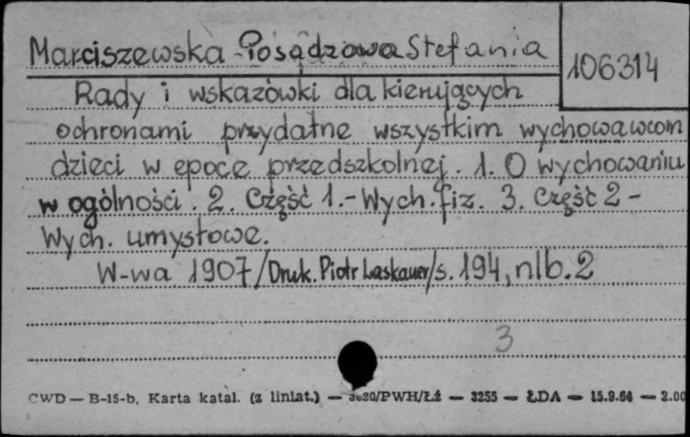 Marciszewska-Posądzowa Stefania
106314
Rady i wskazówki dla kierujących
ochronami przydatne wszystkim wychowawcom
dzieci w epoce przedszkolnej. 1. O wychowaniu
w ogólności. 2. Część 1.-Wych. fiz. 3. Część 2-
Wych. umysłowe.
W-wa 1907/Druk. Piotr Laskauer/s. 194, nlb. 2
3
CWD — B-15-b, Karta katal. (z liniat.) — 3620/PWH/Łż — 3255 — ŁDA — 15.9.64 — 2.00